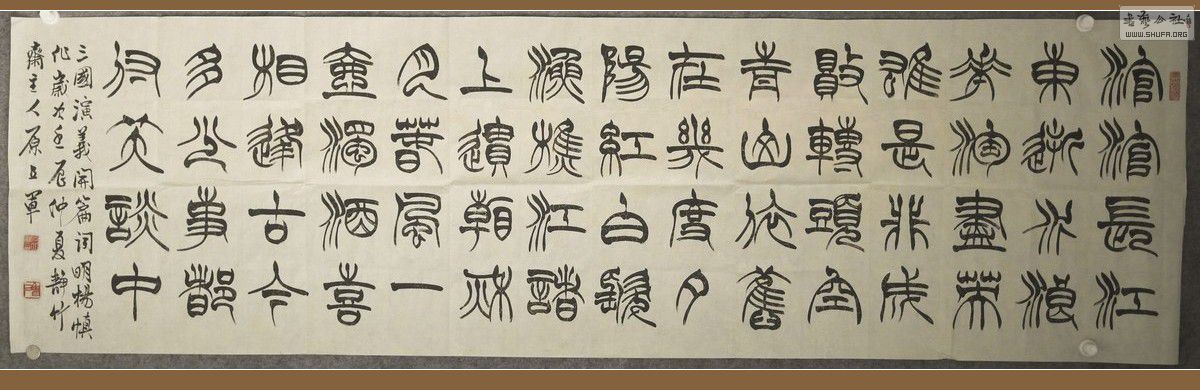 滾滾長江
東逝水浪
花淘盡英
雄是非成
敗轉頭空
青山依舊
在幾度夕
陽紅白髮
漁樵江渚
上慣看秋
月春風一
壺濁酒喜
相逢古今
多少事都
付笑談中
三國演義開篇詞明楊慎
作歲次壬辰仲夏靜竹
齋主人原
WWW.SHUFA.ORG